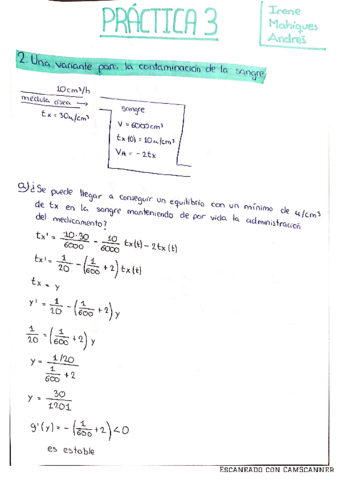 PRÁCTICA 3
Irene
Mahiques
Andrés
2. Una variante para la contaminación de la sangre
10cm³/h
médula ósea →
tx = 30u/cm³
sangre
V = 6000cm³
tx(0) = 10u/cm³
VA = -2tx
a) ¿Se puede llegar a conseguir un equilibrio con un mínimo de u/cm³
de tx en la sangre manteniendo de por vida la administración
del medicamento?
tx' = 10·30/6000 - 10/6000 tx(t) - 2tx(t)
tx' = 1/20 - (1/600 + 2) tx(t)
tx = y
y' = 1/20 - (1/600 + 2) y
1/20 = (1/600 + 2) y
y = (1/20)/(1/600 + 2)
y = 30/1201
g'(y) = -(1/600 + 2) < 0
es estable
ESCANEADO CON CAMSCANNER